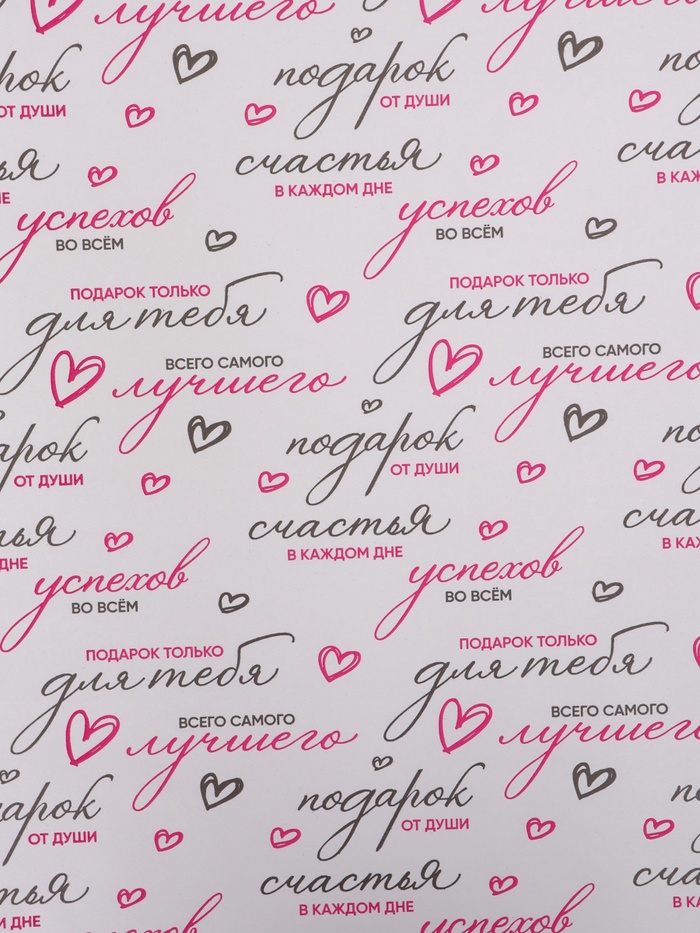 лучшего
лучшего
подарок
подарок
ОТ ДУШИ
ОТ ДУШИ
счастья
В КАЖДОМ ДНЕ
успехов
ВО ВСЁМ
успехов
ВО ВСЁМ
ПОДАРОК ТОЛЬКО
для тебя
ПОДАРОК ТОЛЬКО
для тебя
ВСЕГО САМОГО
лучшего
ВСЕГО САМОГО
лучшего
подарок
ОТ ДУШИ
подарок
ОТ ДУШИ
счастья
В КАЖДОМ ДНЕ
успехов
ВО ВСЁМ
успехов
ВО ВСЁМ
ПОДАРОК ТОЛЬКО
для тебя
ПОДАРОК ТОЛЬКО
для тебя
ВСЕГО САМОГО
лучшего
ВСЕГО САМОГО
лучшего
подарок
ОТ ДУШИ
подарок
ОТ ДУШИ
счастья
В КАЖДОМ ДНЕ
успехов